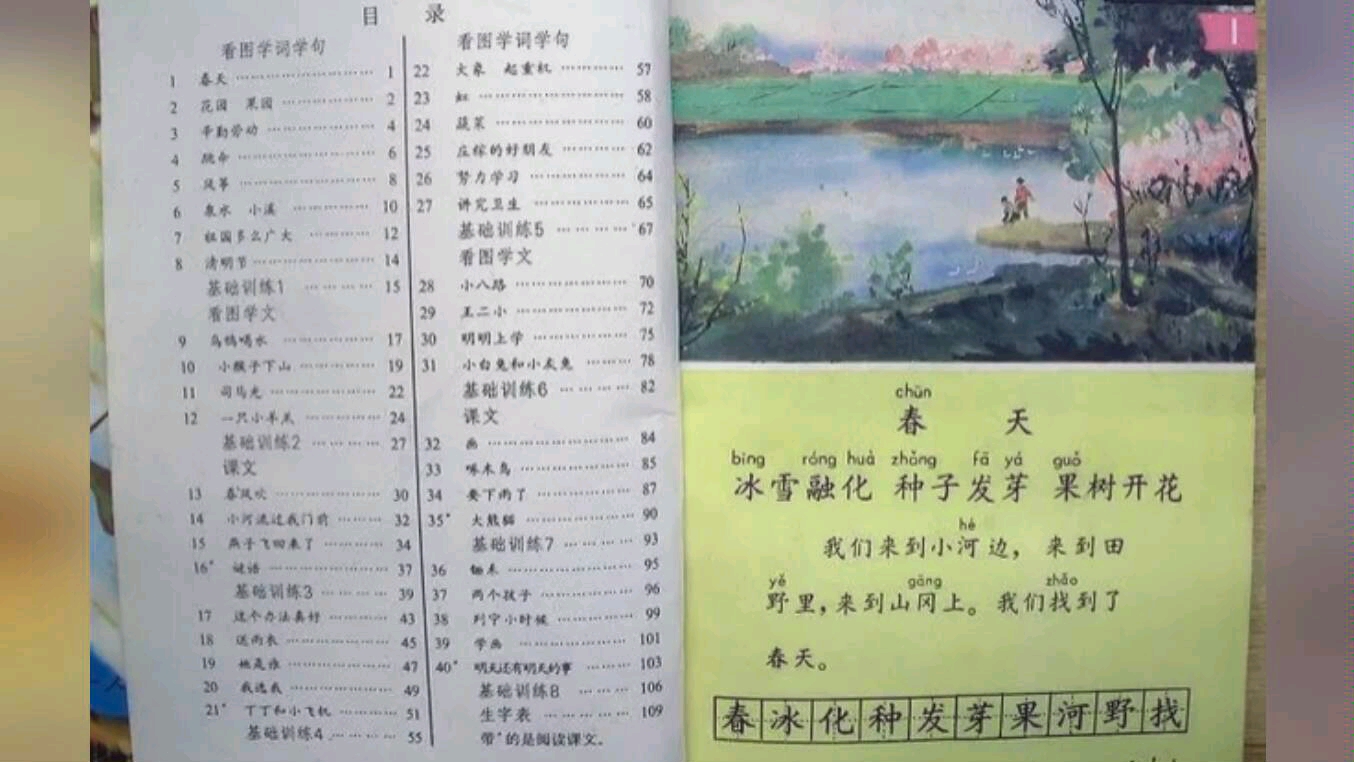 目 录
看图学词学句
1 春天 …… 1
2 花园 果园 …… 2
3 辛勤劳动 …… 4
4 跳命 …… 6
5 风筝 …… 8
6 泉水 小溪 …… 10
7 祖国多么广大 …… 12
8 清明节 …… 14
基础训练1 …… 15
看图学文
9 乌鸦喝水 …… 17
10 小猴子下山 …… 19
11 司马光 …… 22
12 一只小羊羔 …… 24
基础训练2 …… 27
课文
13 春风吹 …… 30
14 小河流过我门前 …… 32
15 燕子飞回来了 …… 34
16* 谜语 …… 37
基础训练3 …… 39
17 这个办法真好 …… 43
18 送雨衣 …… 45
19 她是谁 …… 47
20 我选我 …… 49
21* 丁丁和小飞机 …… 51
基础训练4 …… 55
看图学词学句
22 大象 起重机 …… 57
23 虹 …… 58
24 蔬菜 …… 60
25 庄稼的好朋友 …… 62
26 努力学习 …… 64
27 讲究卫生 …… 65
基础训练5 …… 67
看图学文
28 小八路 …… 70
29 王二小 …… 72
30 明明上学 …… 75
31 小白兔和小灰兔 …… 78
基础训练6 …… 82
课文
32 画 …… 84
33 啄木鸟 …… 85
34 要下雨了 …… 87
35* 大熊猫 …… 90
基础训练7 …… 93
36 锄禾 …… 95
37 两个孩子 …… 96
38 列宁小时候 …… 99
39 学画 …… 101
40* 明天还有明天的事 …… 103
基础训练8 …… 106
生字表 …… 109
带*的是阅读课文。
1
chūn
春 天
bīng róng huà zhǒng fā yá guǒ
冰雪融化 种子发芽 果树开花
hé
我们来到小河边，来到田
yě gāng zhǎo
野里，来到山冈上。我们找到了
春天。
春冰化种发芽果河野找